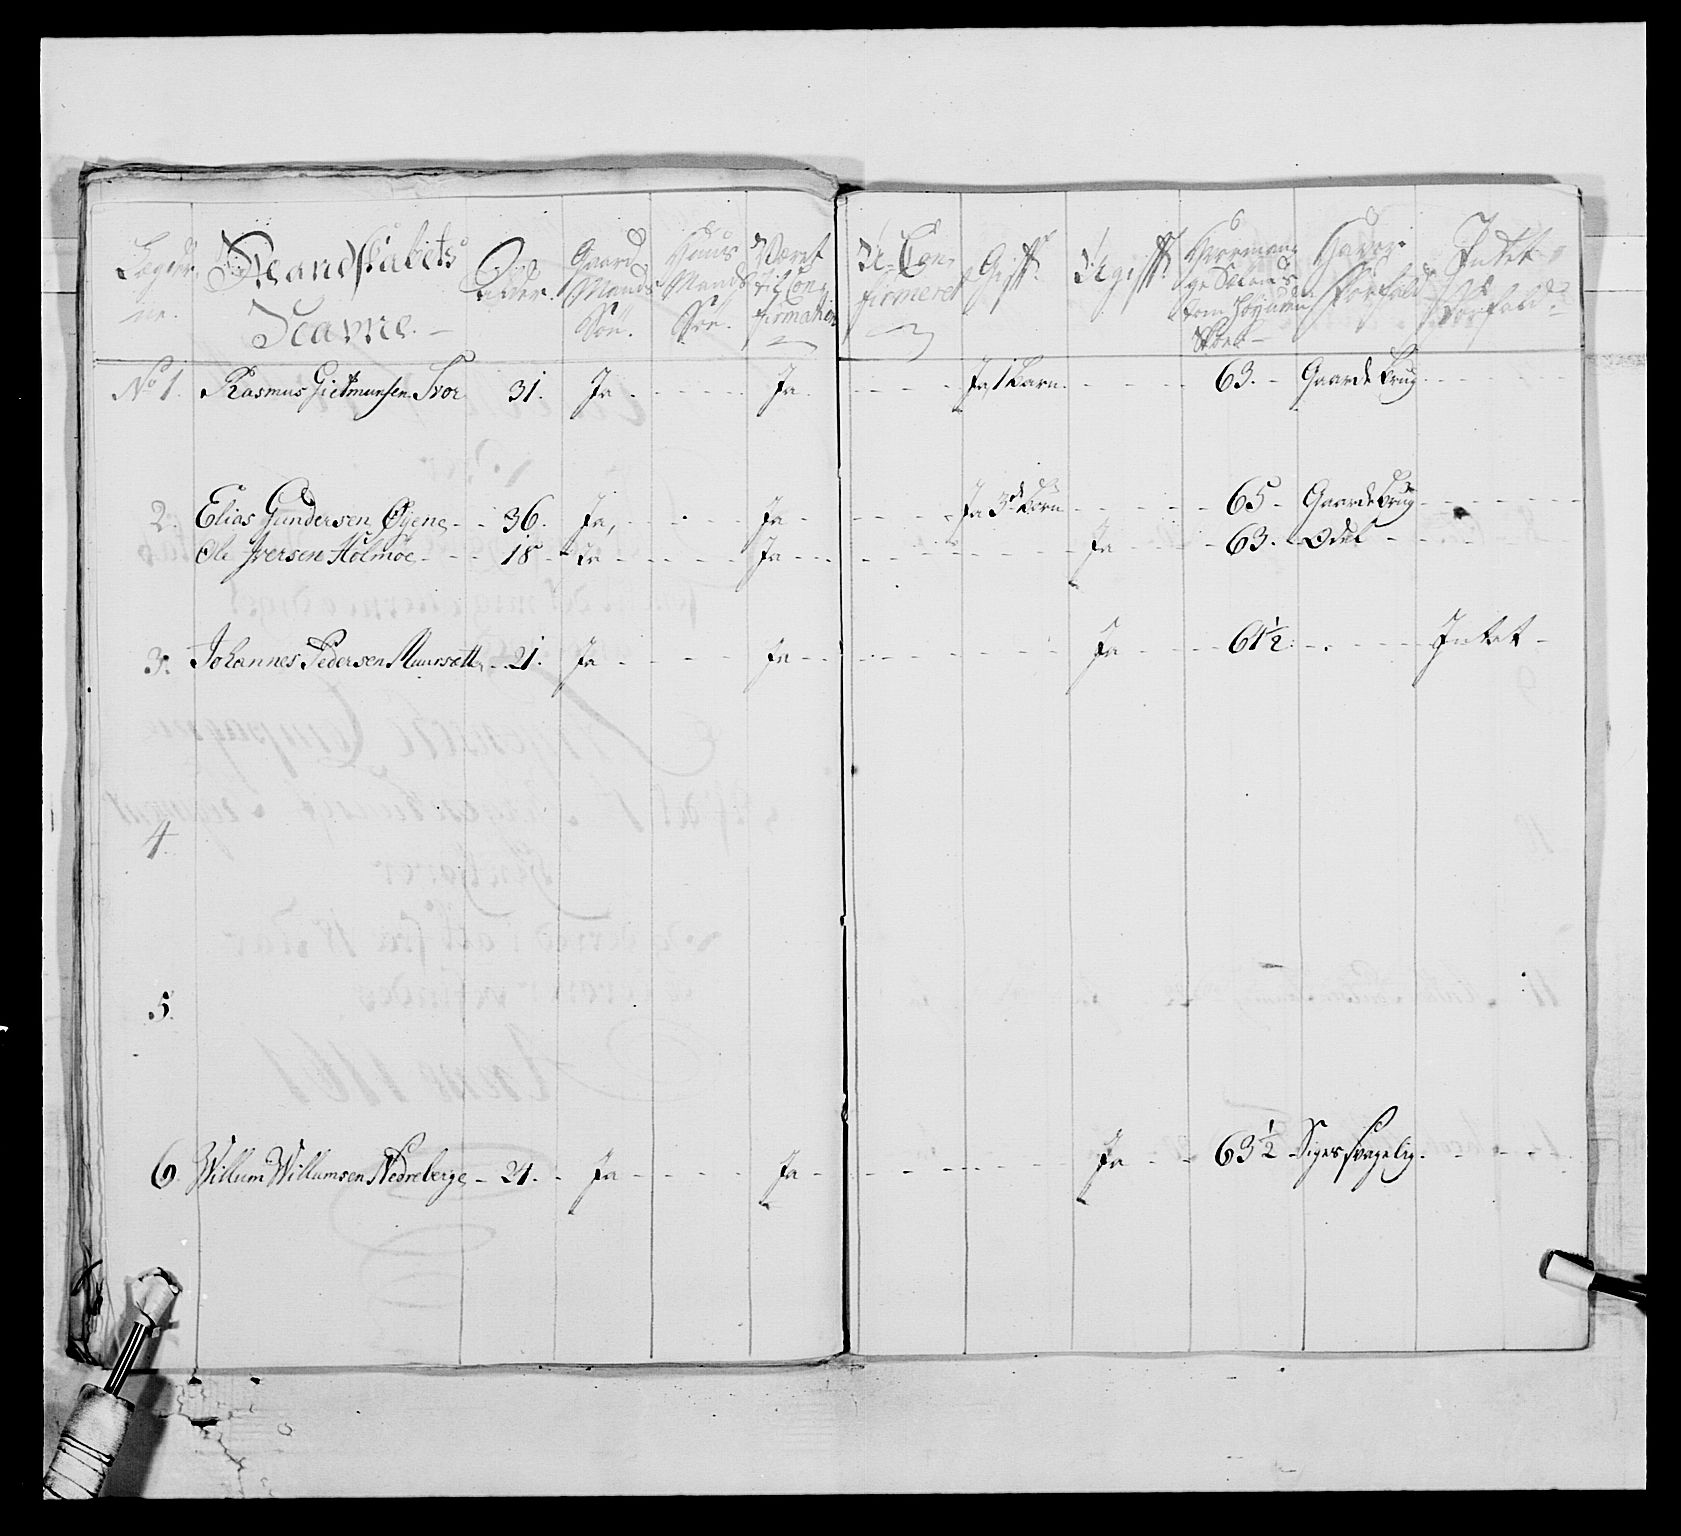 Lægder
ne.
Mandskabets
Navne.
Alder.
Gaard
Mands
Søn.
Huus
Mands
Søn.
Været
til Con
firmation
U-Con
firmeret
Gift.
Ugift.
Hvormang
ge Sølands
Tom Høyden
Haver
Forfald
Intet
Forfald
No 1. Rasmus Giermunsen Svor 31. Ja Ja Ja 1 Barn 63. Gaarde Brug
2. Elias Gundersen Øyene 36. Ja Ja Ja 3de Børn 65 Gaarde Brug
Ole Iversen Holmøe 18 Ja Ja Ja 63. Odel
3. Johannes Pedersen Muursætt 21. Ja Ja Ja 61½ Intet
4.
5.
6. Willum Willumsen Nedreberge 24. Ja Ja Ja 63½ Siges svagelig